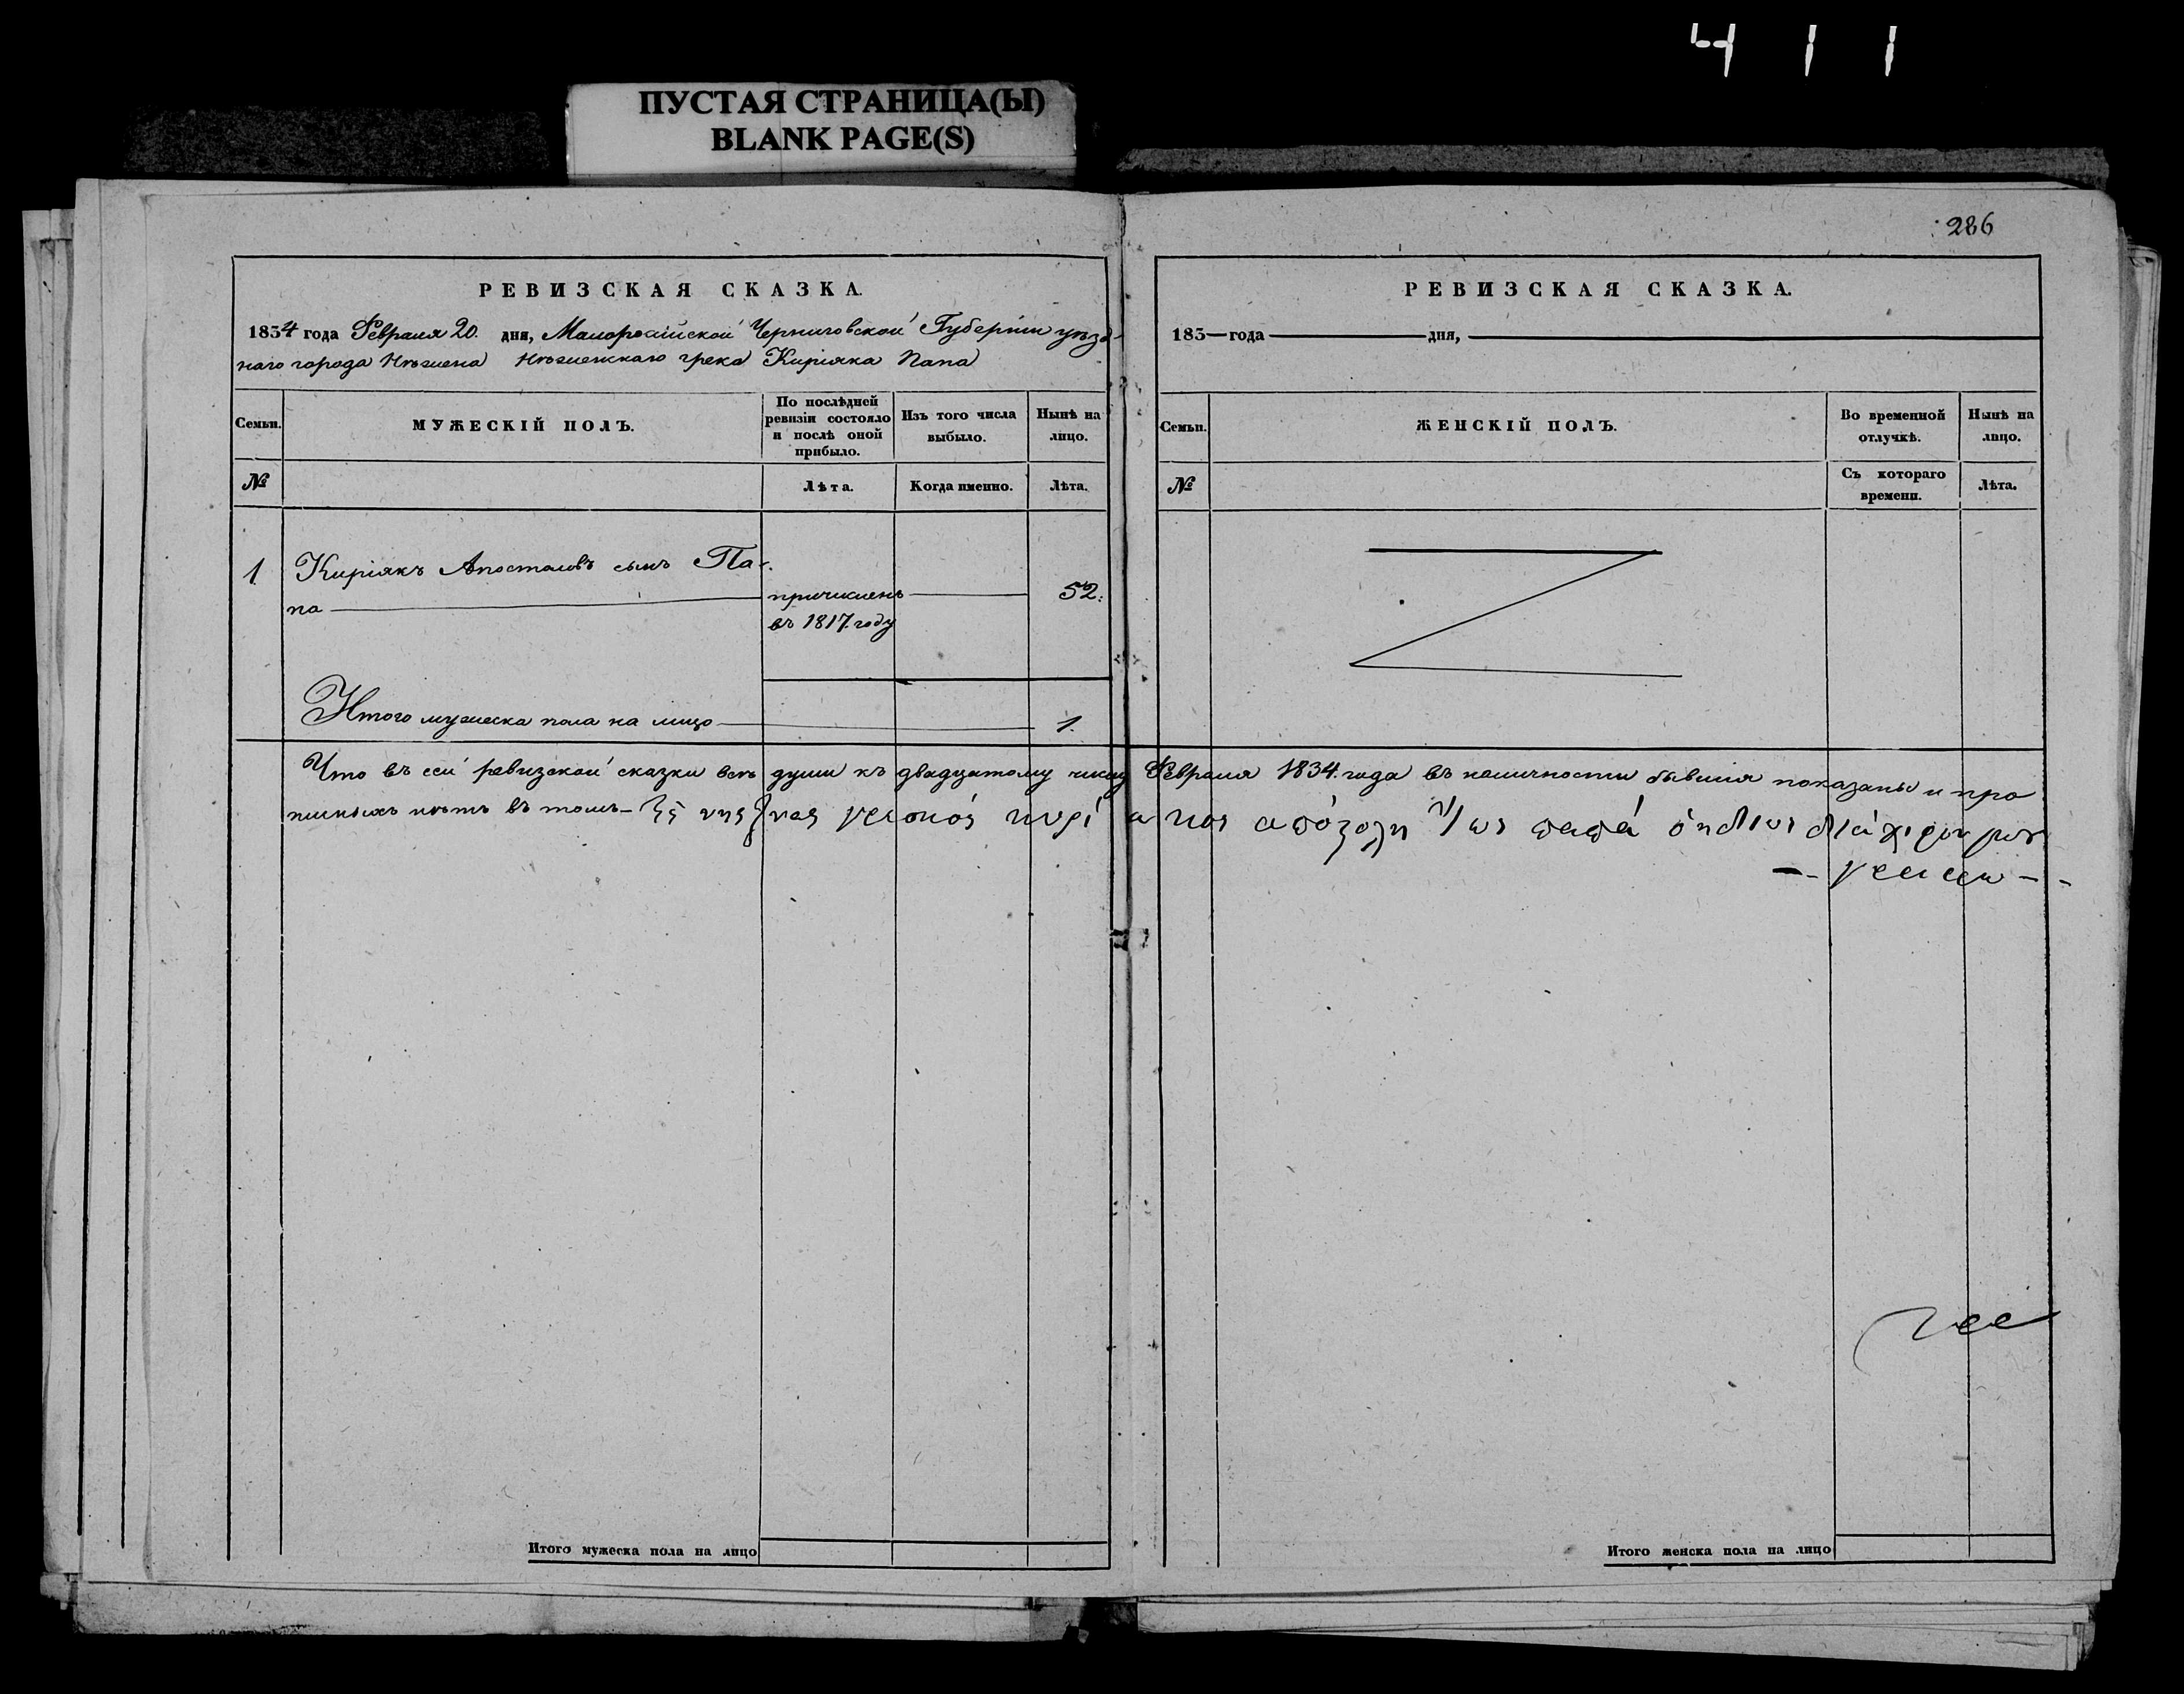 411
ПУСТАЯ СТРАНИЦА(Ы)
BLANK PAGE(S)
286
РЕВИЗСКАЯ СКАЗКА.
1834 года Февраля 20. дня, Малоросійской Черниговской Губерніи уѣзд-
наго города Нѣжена Нѣженскаго грека Киріяка Папа
Семьи.
МУЖЕСКІЙ ПОЛЪ.
По послѣдней ревизіи состояло и послѣ оной прибыло.
Изъ того числа выбыло.
Нынѣ на лицо.
№
Лѣта.
Когда именно.
Лѣта.
1.
Киріякъ Апостоловъ сынъ Па-
па
причисленъ
въ 1817. году
52.
Итого мужеска пола на лицо
1.
РЕВИЗСКАЯ СКАЗКА.
183 года дня,
Семьи.
ЖЕНСКІЙ ПОЛЪ.
Во временной отлучкѣ.
Нынѣ на лицо.
№
Съ котораго времени.
Лѣта.
Что въ сей ревизской сказки всѣ души къ двадцатому числу Февраля 1834. года въ наличности бывшія показаны и про
писныхъ нѣтъ въ томъ
Итого мужеска пола на лицо
Итого женска пола на лицо